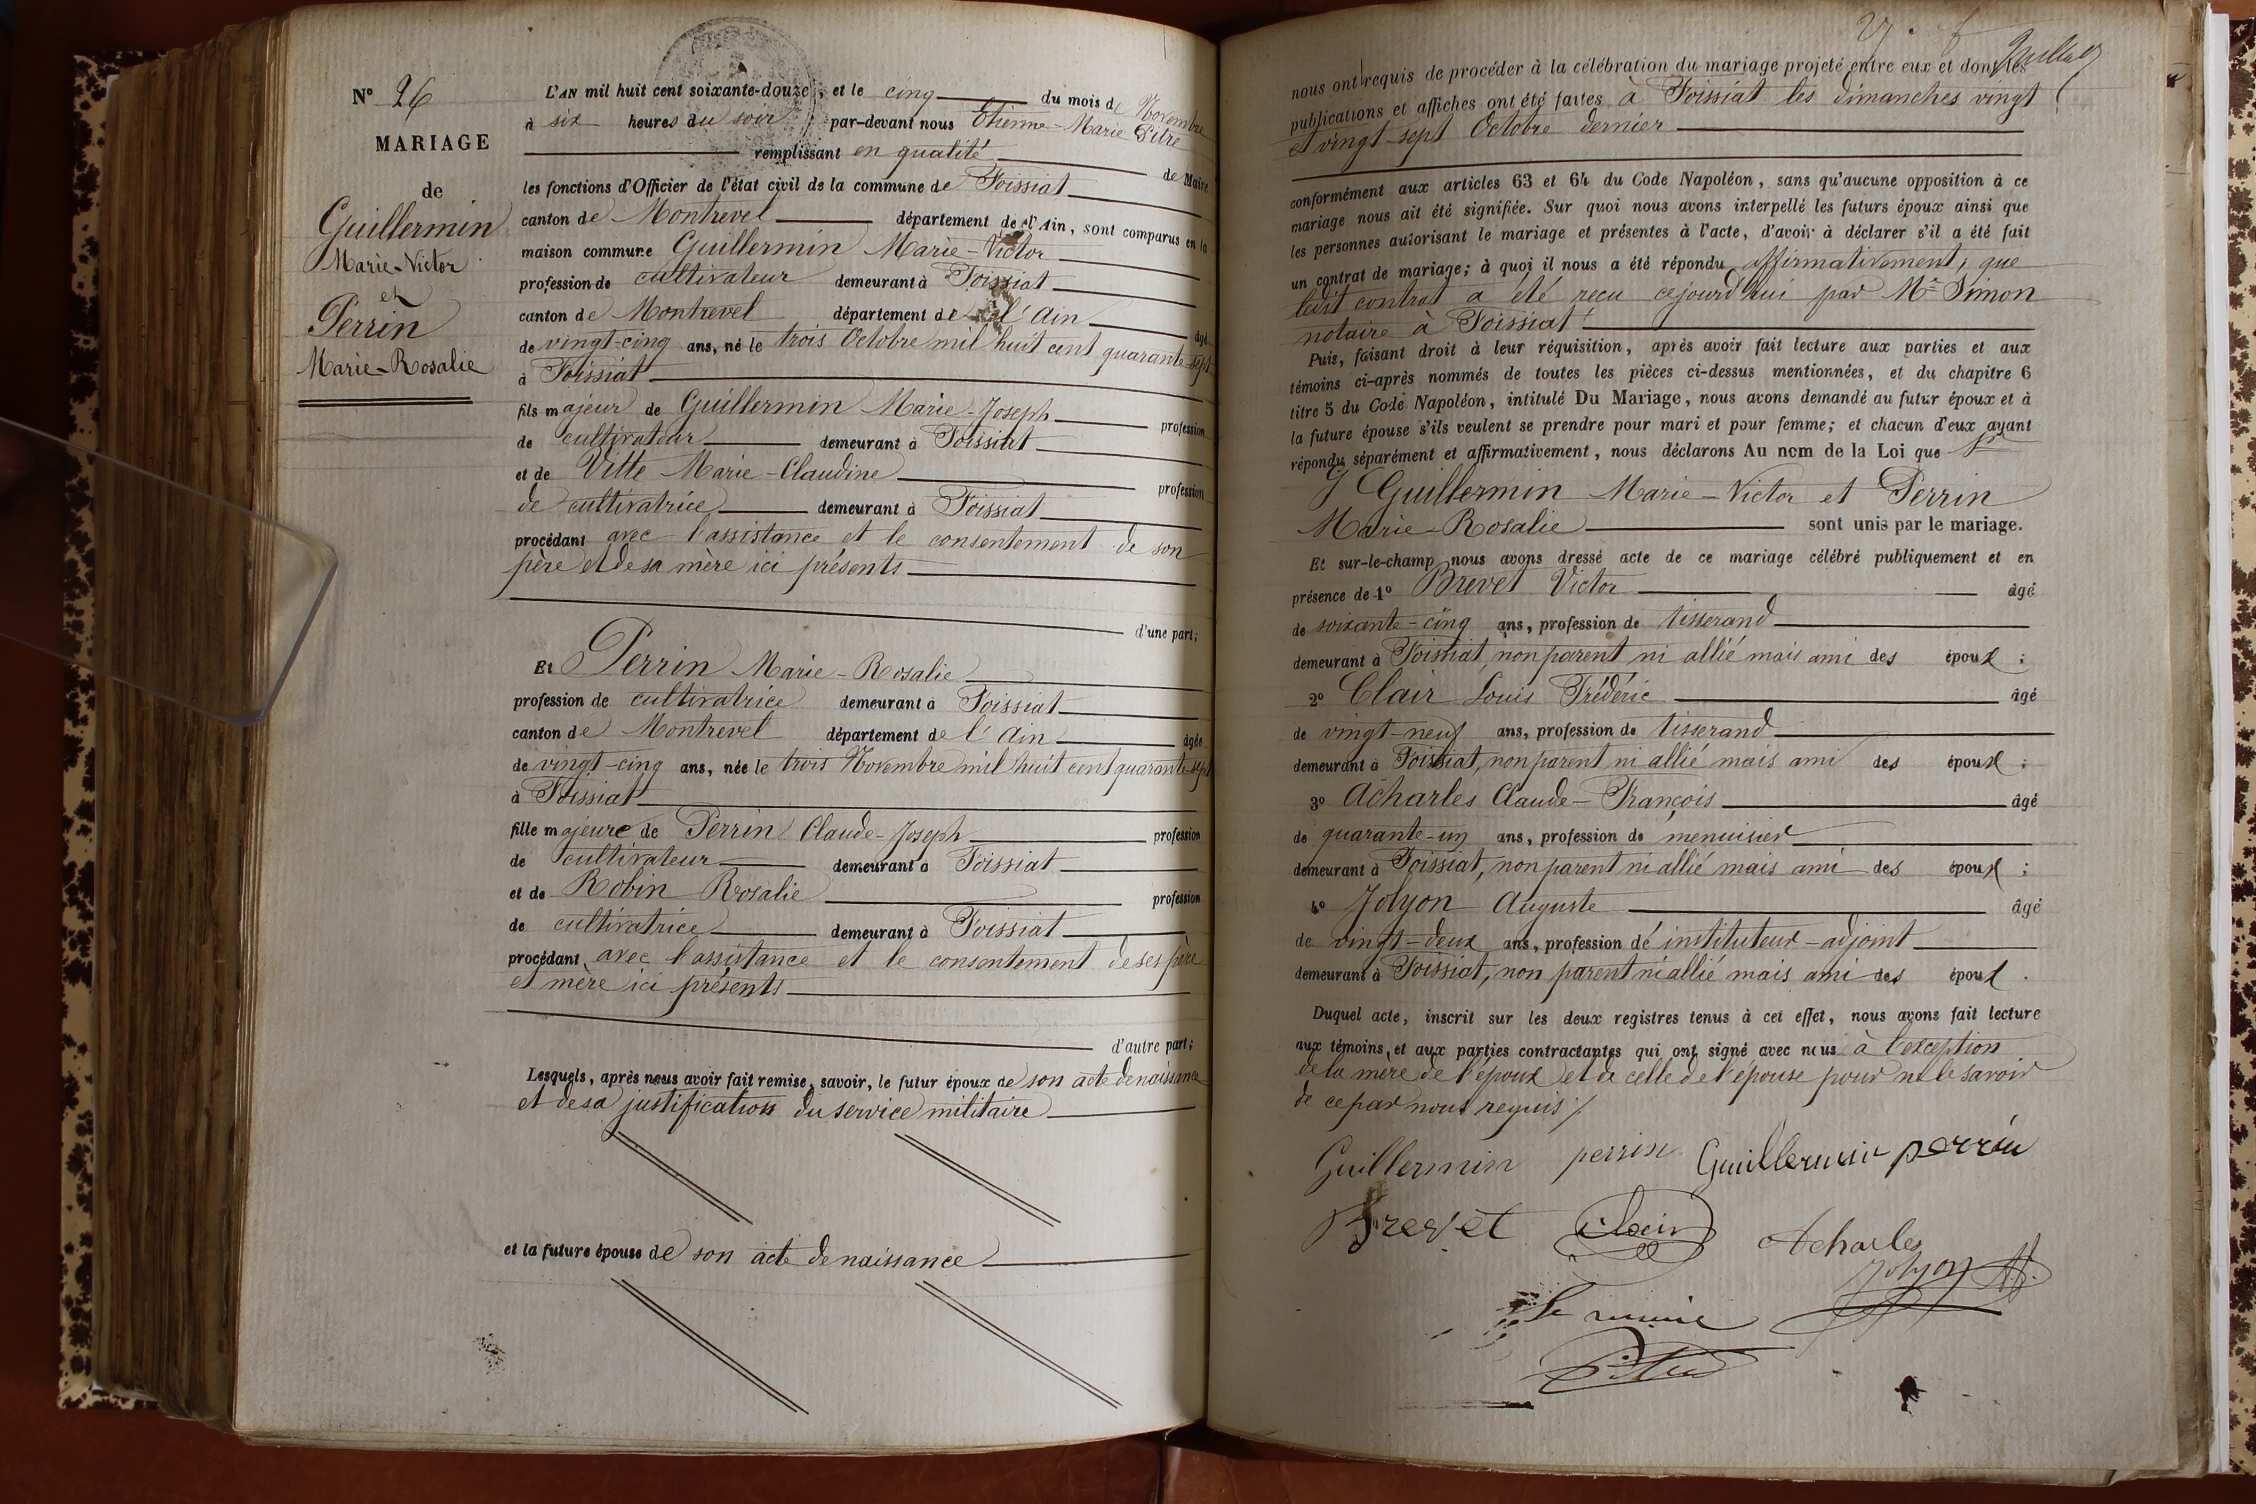 Nº 26
MARIAGE
de
Guillermin
Marie-Victor
et
Perrin
Marie-Rosalie
L'AN mil huit cent soixante-douze, et le cinq du mois de Novembre
à six heures du soir, par-devant nous Etienne-Marie Pitre
remplissant en qualité de Maire
les fonctions d'Officier de l'état civil de la commune de Foissiat
canton de Montrevel département de l'Ain, sont comparus en la
maison commune Guillermin Marie-Victor
profession de cultivateur demeurant à Foissiat
canton de Montrevel département de l'Ain âgé
de vingt-cinq ans, né le trois Octobre mil huit cent quarante-sept
à Foissiat
fils majeur de Guillermin Marie-Joseph profession
de cultivateur demeurant à Foissiat
et de Vitte Marie-Claudine profession
de cultivatrice demeurant à Foissiat
procédant avec l'assistance et le consentement de son
père et de sa mère ici présents
d'une part;
Et Perrin Marie-Rosalie
profession de cultivatrice demeurant à Foissiat
canton de Montrevel département de l'Ain âgée
de vingt-cinq ans, née le trois Novembre mil huit cent quarante-sept
à Foissiat
fille majeure de Perrin Claude-Joseph profession
de cultivateur demeurant à Foissiat
et de Robin Rosalie profession
de cultivatrice demeurant à Foissiat
procédant avec l'assistance et le consentement de ses père
et mère ici présents
d'autre part;
Lesquels, après nous avoir fait remise, savoir, le futur époux de son acte de naissance
et de sa justification du service militaire
et la future épouse de son acte de naissance
nous ont requis de procéder à la célébration du mariage projeté entre eux et dont les
publications et affiches ont été faites à Foissiat les dimanches vingt
et vingt-sept Octobre dernier
conformément aux articles 63 et 64 du Code Napoléon, sans qu'aucune opposition à ce
mariage nous ait été signifiée. Sur quoi nous avons interpellé les futurs époux ainsi que
les personnes autorisant le mariage et présentes à l'acte, d'avoir à déclarer s'il a été fait
un contrat de mariage; à quoi il nous a été répondu affirmativement, que
ledit contrat a été reçu cejourd'hui par Mr Simon
notaire à Foissiat
Puis, faisant droit à leur réquisition, après avoir fait lecture aux parties et aux
témoins ci-après nommés de toutes les pièces ci-dessus mentionnées, et du chapitre 6
titre 5 du Code Napoléon, intitulé Du Mariage, nous avons demandé au futur époux et à
la future épouse s'ils veulent se prendre pour mari et pour femme; et chacun d'eux ayant
répondu séparément et affirmativement, nous déclarons Au nom de la Loi que
Guillermin Marie-Victor et Perrin
Marie-Rosalie sont unis par le mariage.
Et sur-le-champ nous avons dressé acte de ce mariage célébré publiquement et en
présence de 1º Brevet Victor âgé
de soixante-cinq ans, profession de tisserand
demeurant à Foissiat, non parent ni allié mais ami des époux;
2º Clair Louis Frédéric âgé
de vingt-neuf ans, profession de tisserand
demeurant à Foissiat, non parent ni allié mais ami des époux;
3º Acharles Claude-François âgé
de quarante-un ans, profession de menuisier
demeurant à Foissiat, non parent ni allié mais ami des époux;
4º Jolyon Auguste âgé
de vingt-deux ans, profession de instituteur-adjoint
demeurant à Foissiat, non parent ni allié mais ami des époux.
Duquel acte, inscrit sur les deux registres tenus à cet effet, nous avons fait lecture
aux témoins, et aux parties contractantes qui ont signé avec nous à l'exception
de la mère de l'époux et de celle de l'épouse pour ne le savoir
de ce par nous requis
Guillermin perrin Guillermin perrin
Brevet Clair Acharles
Jolyon A.
Le maire
Pitre